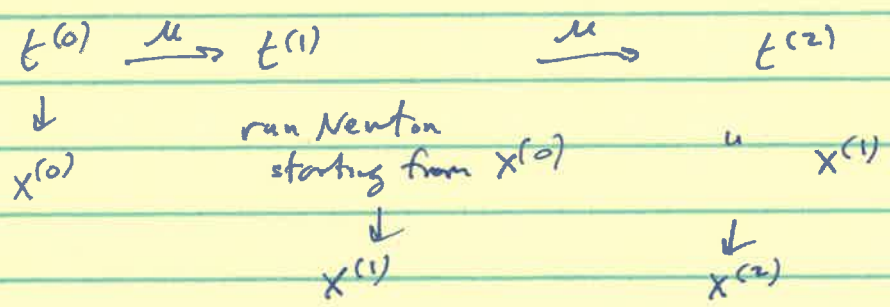 t^(0) μ→ t^(1) μ→ t^(2)
↓ run Newton
x^(0) starting from x^(0) " x^(1)
↓ ↓
x^(1) x^(2)